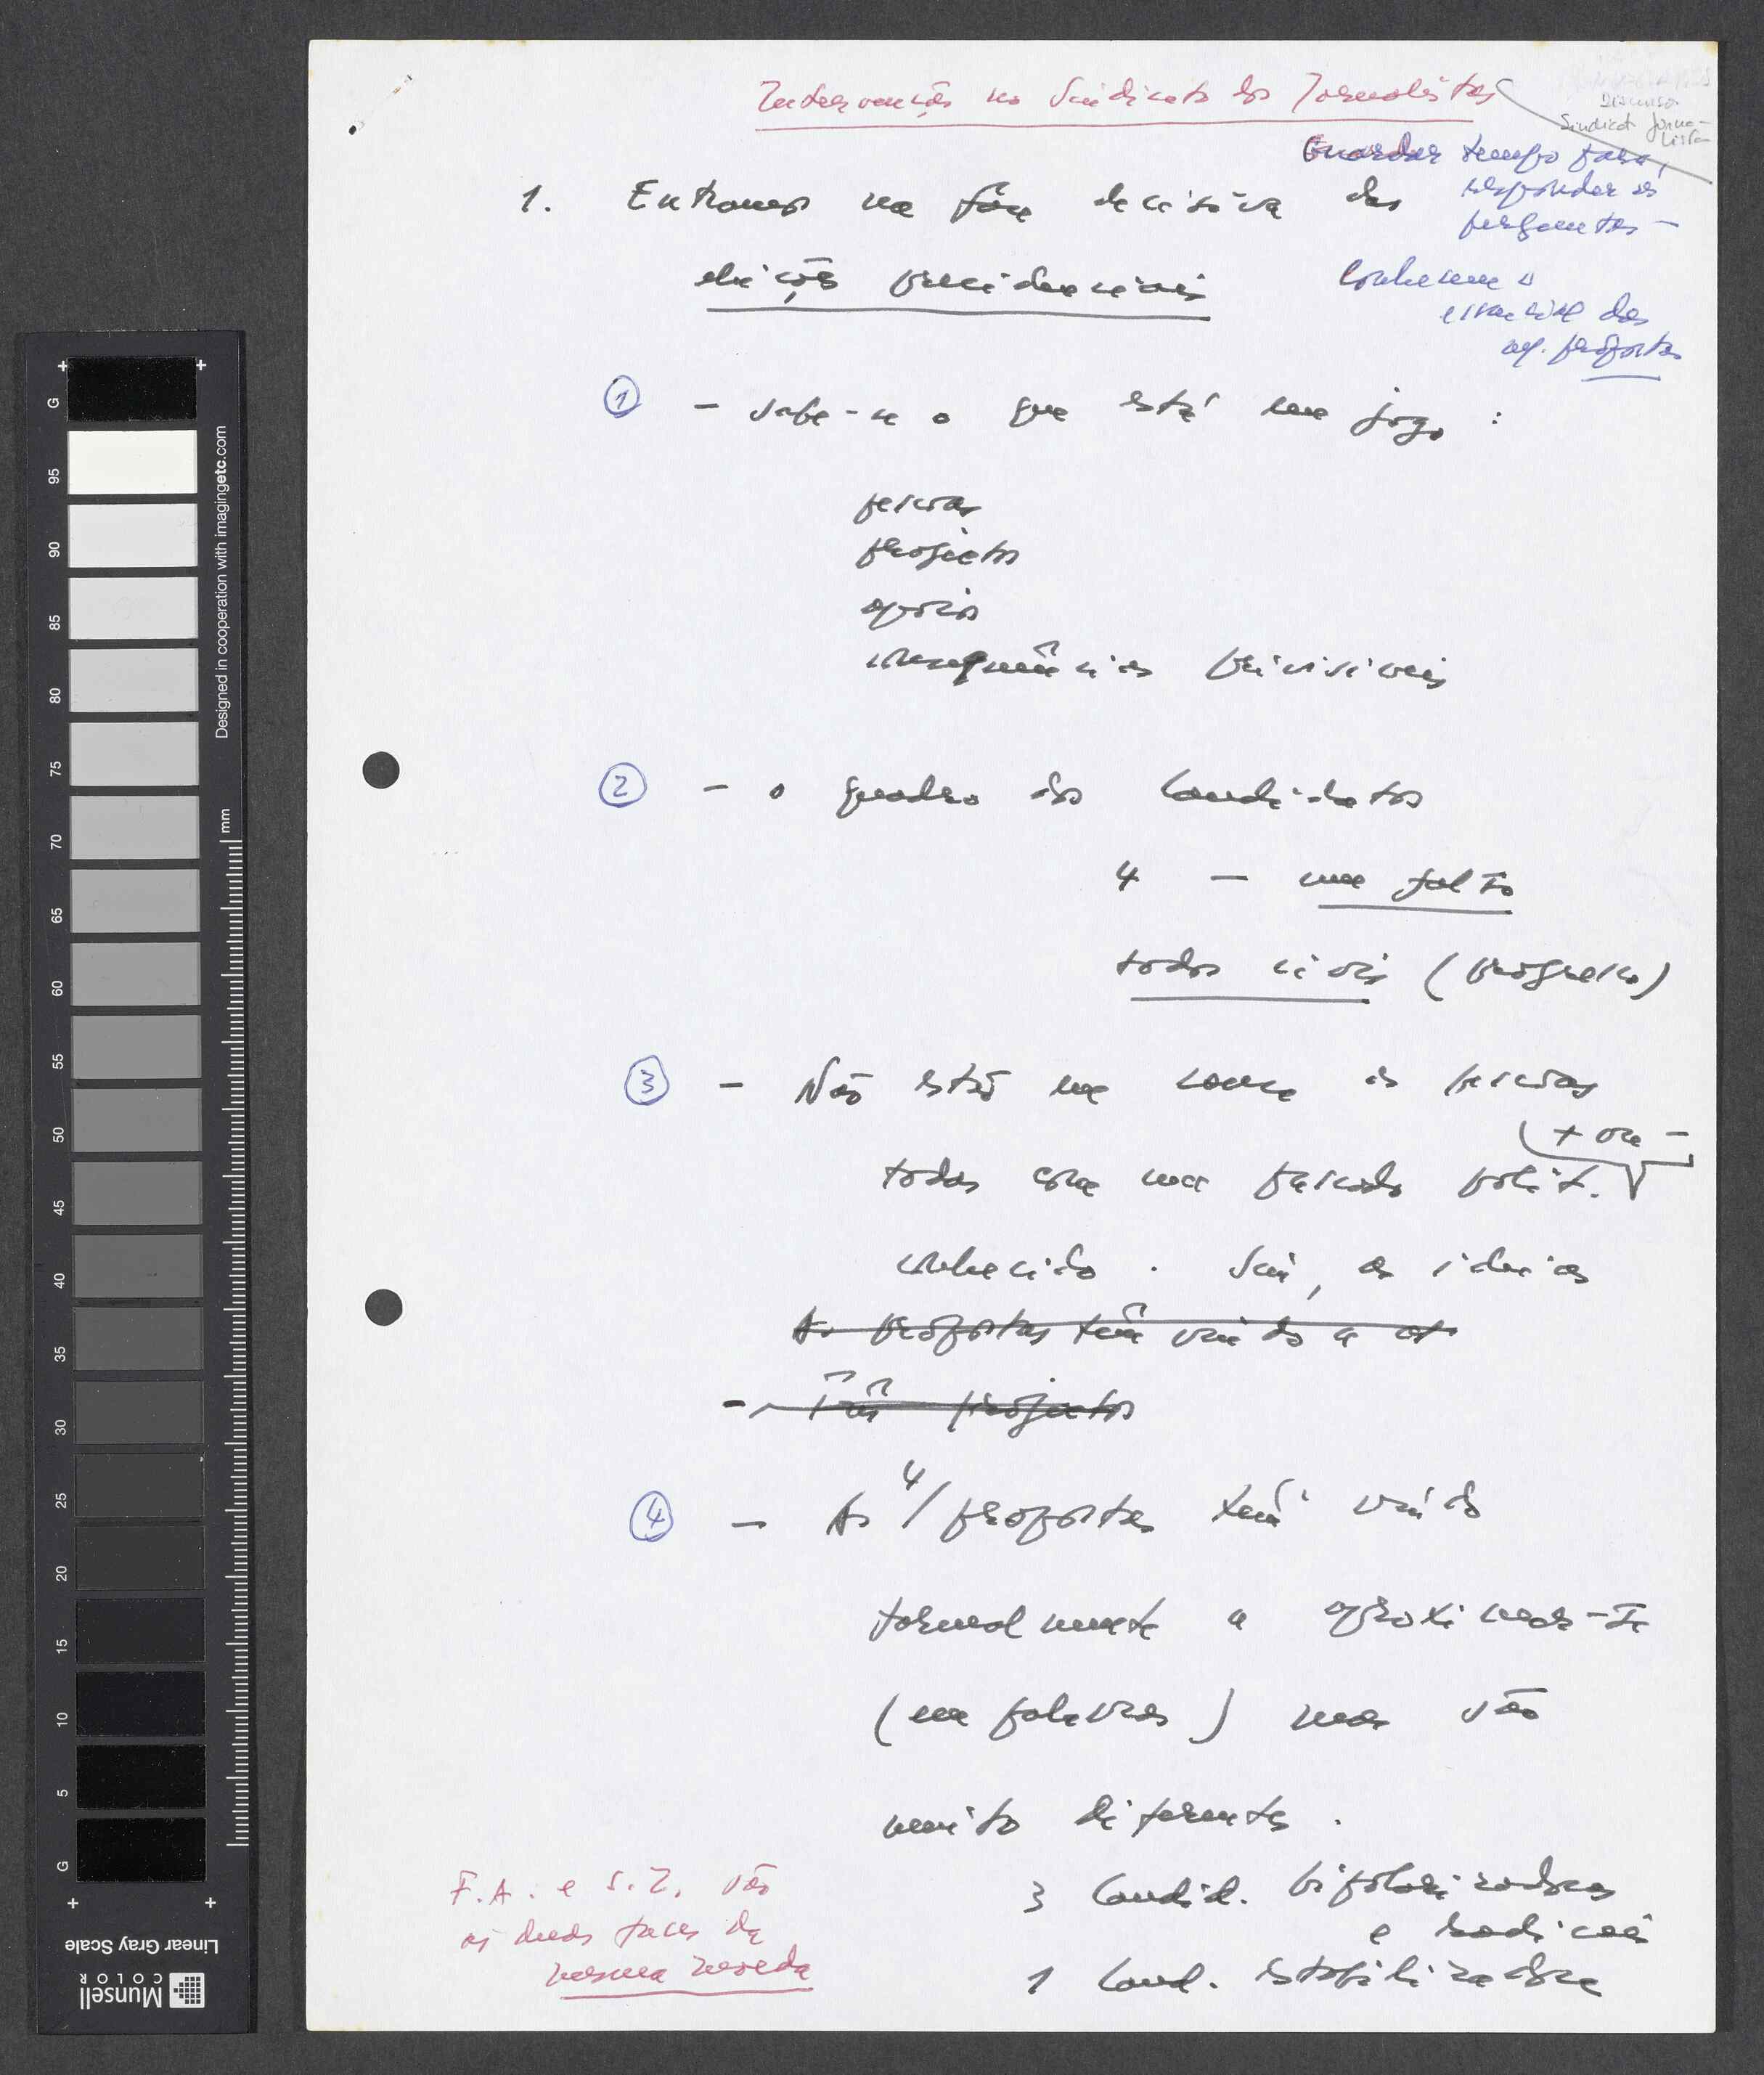 Intervenção no Sindicato dos Jornalistas
Discurso
Sindicat. Jorna-
lista
Guardar tempo para
responder às
perguntas –
Conhecem o
essencial das
m/. propostas
1. Entramos na fase decisiva das
eleições presidenciais
① – Sabe-se o que está em jogo :
pessoas
projectos
apoios
consequências previsíveis
② – o quadro dos candidatos
4 – em falta
todos civis (progresso)
③ – Não estão em causa as pessoas
(+ ou –
todas com um passado polít.
conhecido . Sim, as ideias
As propostas têm vindo a
– Três projectos
④ – As 4/ propostas têm vindo
formalmente a aproximar-se
(em palavras) mas são
muito diferentes .
3 Candid. bipolarizadoras
e radicais
1 Cand. estabilizadora
F.A. e S.Z. são
as duas faces da
mesma moeda
G
95
90
85
80
75
70
65
60
55
50
45
40
35
30
25
20
15
10
5
G
mm
Designed in cooperation with imagingetc.com
Linear Gray Scale
Munsell
COLOR